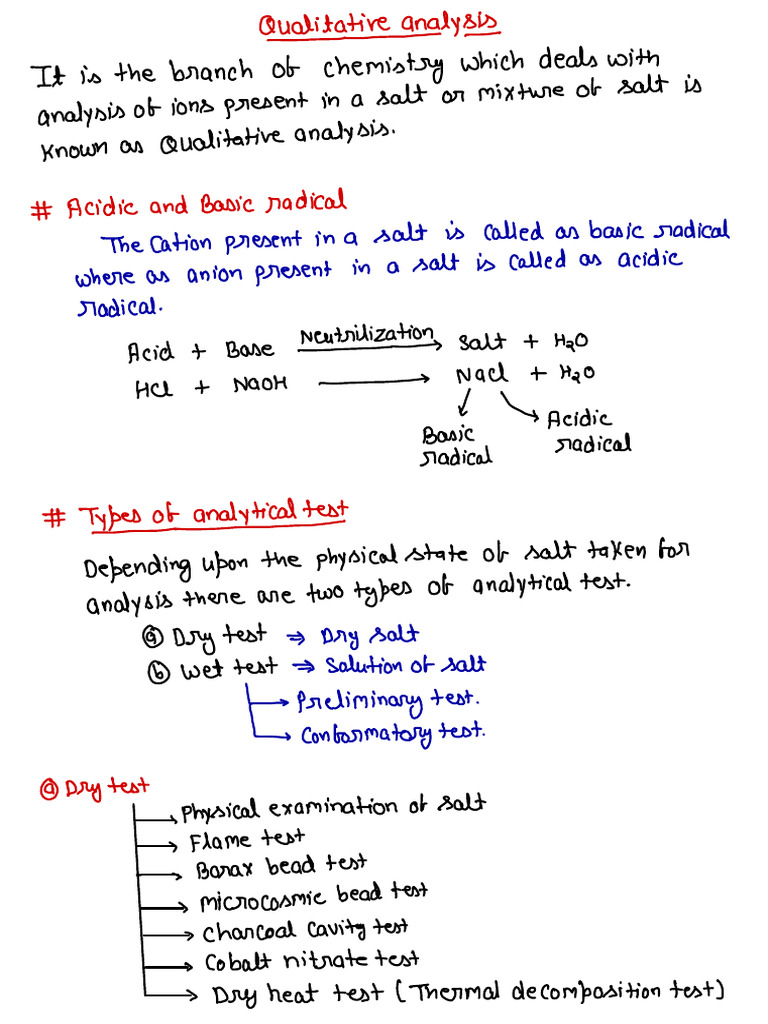 Qualitative analysis
It is the branch of chemistry which deals with
analysis of ions present in a salt or mixture of salt is
known as Qualitative analysis.
# Acidic and Basic radical
The Cation present in a salt is called as basic radical
where as anion present in a salt is called as acidic
radical.
Acid + Base Neutrilization→ Salt + H₂O
HCl + NaOH → NaCl + H₂O
Basic radical
Acidic radical
# Types of analytical test
Depending upon the physical state of salt taken for
analysis there are two types of analytical test.
ⓐ Dry test ⇒ Dry salt
ⓑ Wet test ⇒ Salution of salt
→ Preliminary test.
→ Conformatory test.
ⓐ Dry test
→ Physical examination of salt
→ Flame test
→ Borax bead test
→ microcosmic bead test
→ charcoal cavity test
→ Cobalt nitrate test
→ Dry heat test (Thermal decomposition test)